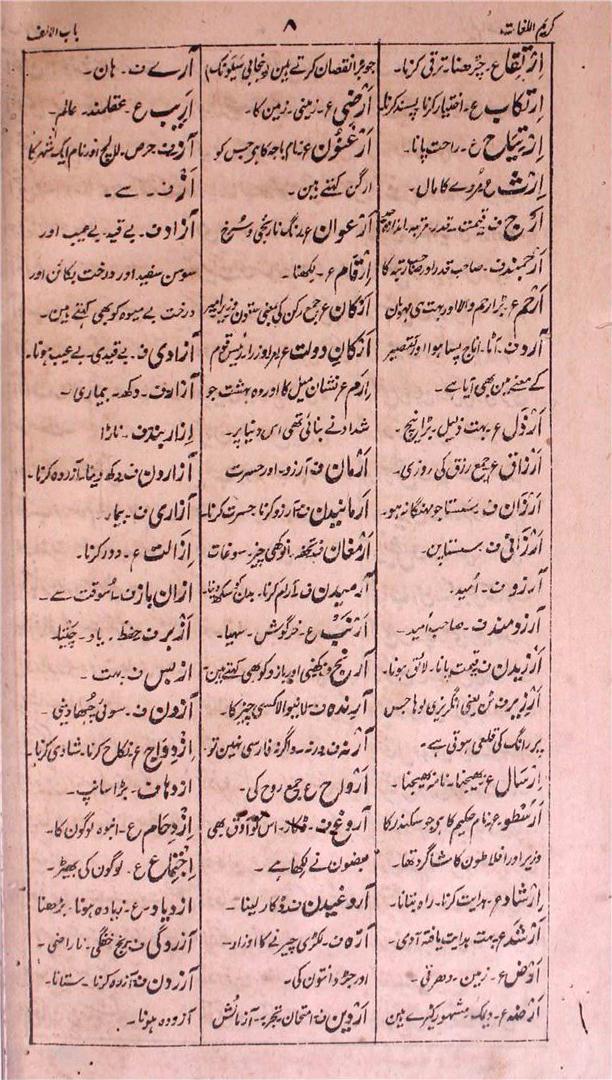 کریم اللغات
۸
باب الالف
اِرْتِقَاع ع۔ چڑھنا۔ ترقی کرنا۔
اِرْتِکَاب ع۔ اختیار کرنا پسند کرنا۔
اِرْتِیَاح ع۔ راحت پانا۔
اِرْث ع مُردے کا مال۔
اَرْج ف قیمت۔ قدر۔ مرتبہ۔
اَرْجمند ف۔ صاحب قدر اور صاحب رتبہ کا
اَرْحَم ع۔ بڑا رحم والا اور بہت ہی مہربان
آرد ف۔ آٹا۔ اناج پسا ہوا اور تقصیر
کے معنے مین بھی آیا ہے۔
اَرْذَل ع۔ بہت ذلیل۔ بڑا نیچ۔
اَرْزَاق ع جمع رزق کی روزی۔
اَرْزَان ف۔ سستا جو مہنگا نہو۔
اَرْزَانی ف۔ سستا پن۔
آرزو ف۔ اُمید۔
آرزومند ف۔ صاحب اُمید۔
اَرْزِیدن ف قیمت پانا۔ لائق ہونا۔
اَرْزِیز ف ٹن یعنی انگریزی لوہا جس
پر رانگ کی قلعی ہوتی ہے۔
اِرْسَال ع۔ بھیجنا۔ نامہ بھیجنا۔
اَرَسْطو ع۔ نام حکیم کا ہی جو سکندر کا
وزیر اور افلاطون کا شاگرد تھا۔
اِرْشَاد ع۔ ہدایت کرنا۔ راہ بتانا۔
اَرْشَد ع بہت ہدایت یافتہ آدمی۔
اَرْض ع۔ زمین۔ دھرتی۔
اَرْضہ ع۔ دیمک مشہور کیڑے ہین
جو بڑا نقصان کرتے ہین
اَرْضِی ع۔ زمینی۔ زمین کا۔
اَرْغَنُون ع نام باجہ کا ہو جس کو
ارگن کہتے ہین۔
اَرْغوان ع۔ رنگ نارنجی و سُرخ
اِرْقَام ع۔ لکھنا۔
اَرْکَان ع جمع رکن کی بمعنی ستون وزیر امیر
اَرْکَانِ دولت ع امرا وزرا رئیس قوم
اِرَم ع نشان میل کا اور وہ بہشت جو
شداد نے بنائی تھی اس دنیا پر۔
اَرْمَان ف آرزو۔ اور حسرت
اَرْمَانِیدن ف آرزو کرنا حسرت کرنا۔
اَرْمَغَان ف تحفہ۔ انوکھی چیز۔ سوغات
آرمیدن ف آرام کرنا۔
اَرْنَب ع۔ خرگوش۔ سہیا۔
آرنج کہنی اور بازو کو بھی کہتے ہین
آرندہ ف۔ لانیوالا کسی چیز کا۔
آرنہ ف ورنہ۔ واگرنہ فارسی نہین تر۔
اَرْوَاح ع جمع روح کی۔
آروغ ف۔ ڈکار۔ اس کو آروق بھی
بعضون نے لکھا ہے۔
آروغیدن ف ڈکار لینا۔
آرّہ ف۔ لکڑی چیرنے کا اوزار۔
اور جڑ دانتون کی۔
اَرْدین ف امتحان تجربہ۔ آزمائش
آرے ف۔ ہان۔
اَرِیب ع۔ عقلمند۔ عالم۔
آز ف حرص۔ لالچ اور نام ایک شہر کا
اَز ف۔ سے۔
آزاد ف۔ بے قید۔ بے عیب اور
سوسن سفید اور درخت بکائن اور
درخت بے میوہ کو بھی کہتے ہین۔
آزادی ف۔ بے قیدی۔ بے عیب ہونا۔
آزار ف۔ دکھ۔ بیماری۔
اِزار بند ف۔ ناڑا
آزاردن ف دکھ دینا۔ آزردہ کرنا۔
آزاری ف۔ بیمار۔
اِزَالَت ع۔ دور کرنا۔
ازان باز ف۔ اُسوقت سے۔
اَزْبر ف حفظ۔ یاد۔
ازبس ف۔ بہت۔
آزدن ف۔ سوئی چُبھا دینی۔
اِزْدِوَاج ع نکاح کرنا۔ شادی کرنا۔
اژدہا ف۔ بڑا سانپ۔
اِزْدِحَام ع۔ انبوہ لوگون کا۔
اِجْتِمَاع ع۔ لوگون کی بھیڑ۔
ازدیاد ع۔ زیادہ ہونا۔ بڑھنا
آزردگی ف رنج خفگی۔ ناراضی۔
آزردن ف آزردہ کرنا۔ ستانا۔
آزردہ ہونا۔